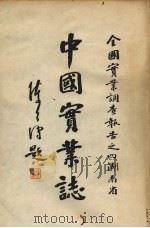 全國實業調查報告之四湖南省
中國實業誌